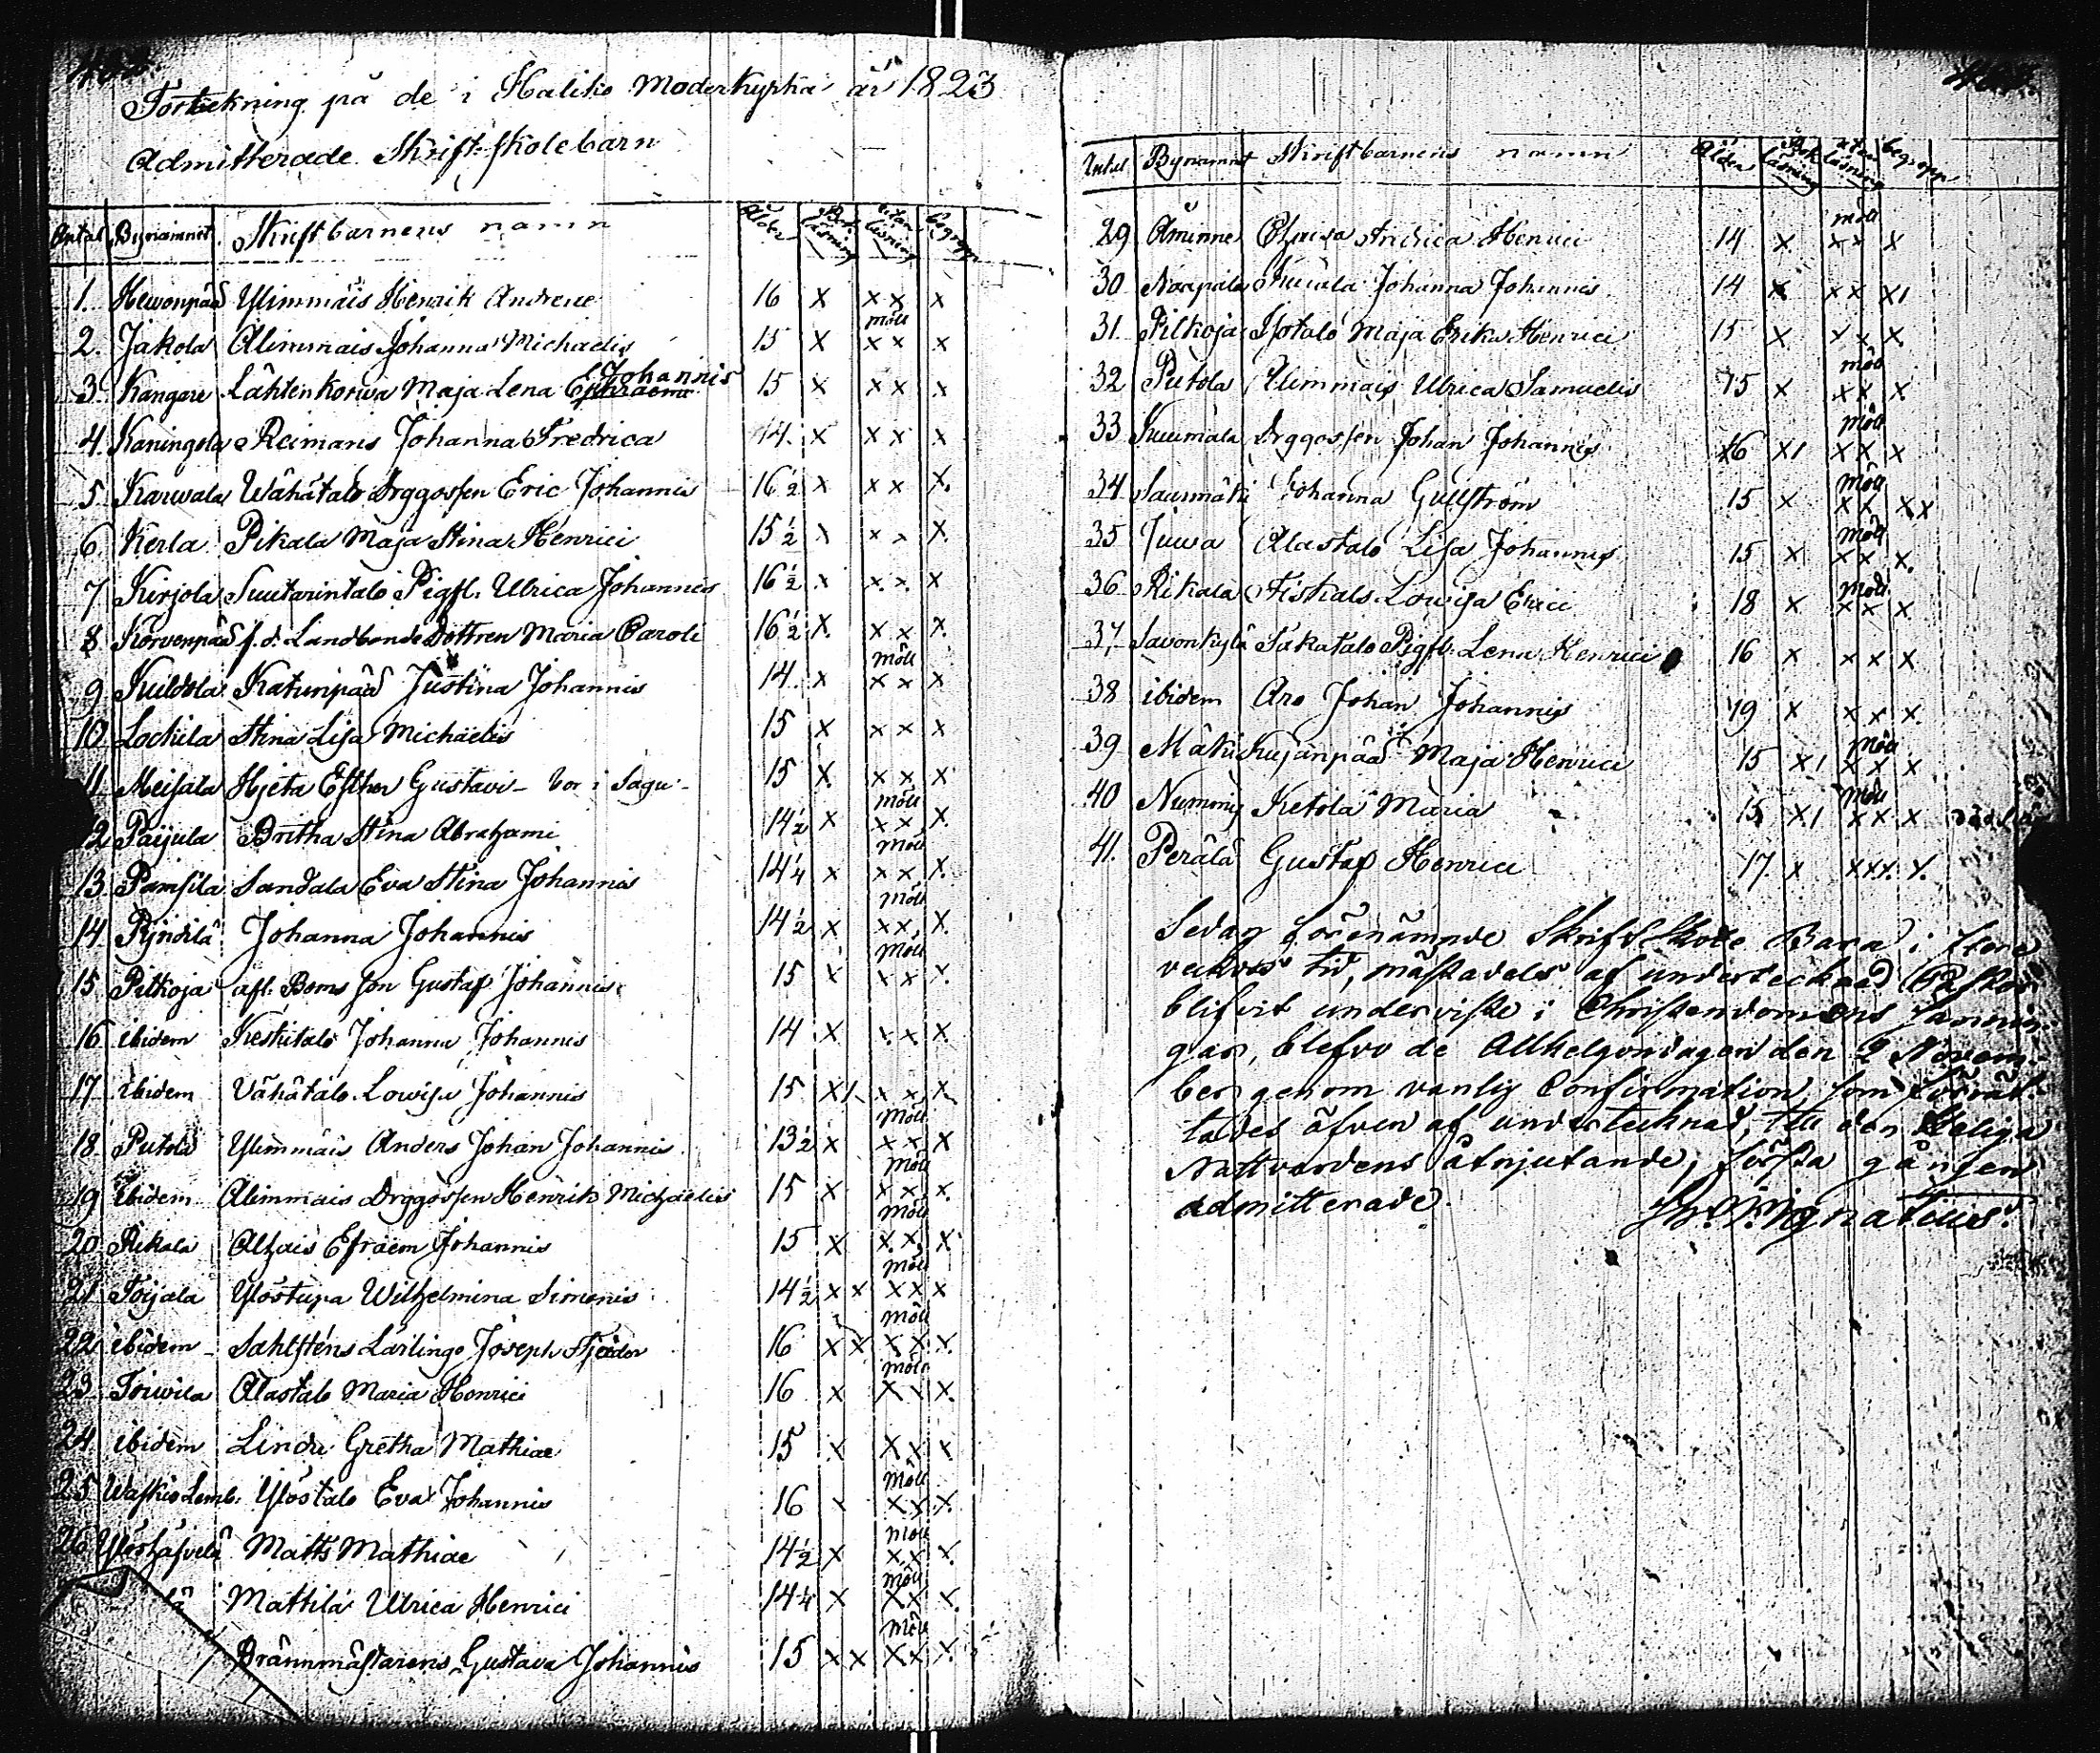 Förtekning på de i Haliko Moderkyrka år 1823
Admitterade Skrift-skolebarn
Antal Bynamnet Skriftbarnens namn Ålder Bok läsning utan läsning begrepp
1. Hewonpää Ylimmäis Henrik Andreae 16 x x x x
2. Jakola Alimmais Johanna Michaelis 15 x möll x x x
3. Kangare Lähtenkorwa Maja Lena Ephraemi Johannis 15 x x x x
4. Kaningola Reimans Johanna Fredrica 14. x x x x
5 Karwala Wähätalo Drggossen Eric Johannis 16½ x x x x.
6. Kerla Pikala Maja Stina Henrici 15½ x x x x
7 Kirjola Suutarintalo Pigfl. Ulrica Johannis 16½ x x x x
8 Korvenpää f.d. Landbonde Dottren Maria Caroli 16½ x. x x x.
9 Kuildola Katunpää Justina Johannis 14. x möll x x x
10. Lochila Stina Lisa Michaelis 15 x x x x
11. Meisala Hjeta Esther Gustavi - bor i Sagu - 15 x. x x x
12 Paijula Britha Stina Abrahami 14½ x möll x x x.
13. Pamsila Sandala Eva Stina Johannis 14¼ x möll x x x
14. Pyndilä Johanna Johannis 14½ x möll x x x.
15 Pitkoja afl. Boms son Gustaf Johannis 15 x möll x x x.
16 ibidem Keskitalo Johanna Johannis 14 x x x x
17. ibidem Vähätalo Lowisa Johannis 15 x1 x x x
18. Putola Ylimmäis Anders Johan Johannis 13½ x möll x x x
19 ibidem Alimmais Drggossen Henrik Michaelis 15 x möll x x x.
20. Rikala Alhais Efraem Johannis 15 x möll x x x
21. Toijala Ylöstupa Wilhelmina Simonis 14½ x x möll x x x
22. ibidem - Sahlsténs Lärling Joseph 16 x x möll x x x.
23. Toiwila Alastalo Maria Henrici 16 x möll x x x.
24. ibidem Linda Gretha Mathiae 15 x x x x
25 Waskio Lemb. Ylöstalo Eva Johannis 16 x möll x x x.
26 Matts Mathiae 14½ x möll x x x.
ä Mattila Ulrica Henrici 14¼ x möll x x x.
Brännmästarens Gustava Johannis 15 x x möll x x x.
Antal Bynamnet Skriftbarnens namn Ålder Bok läsning utan läsning begrepp
29 Åminne Andrica Henrici 14 x möll x x x
30 Naapala Johanna Johannis 14 x x x x1
31. Pitkoja Isotalo Maja Erika Henrici 15 x x x x
32 Putola Alimmais Ulrica Samuelis 15 x möll x x x
33 Kuumala Drggossen Johan Johannis 16 x1 möll x x x
34 Saurmäki Johanna Gullström 15 x möll x x x x
35 Juwa Alastalo Lisa Johannis 15 x möll x x x.
36 Rikala Fiskals Lowisa Erici 18 x möll x x x
37. Savonkylä Sakatalo Pigfl. Lena Henrici 16 x x x x
38 ibidem Aro Johan Johannis 19 x x x x.
39 Mäki Kujanpää Maja Henrici 15 x1 möll x x x
40 Nummis Ketola Maria 15 x1 möll x x x
41. Perälä Gustaf Henrici 17 x x x x. x.
Sedan förenämnde Skrift Skole Barn i flere
veckors tid, mästadels af undertecknad Pastor
blifvit underviste i Christendomens sannin-
gar, blefvo de Allhelgondagen den 2 Novem-
ber genom vanlig Confirmation, som förrät-
tades äfven af undertecknad, till den Heliga
Nattvardens åtnjutande, första gången
admitterade.
Ignatius.